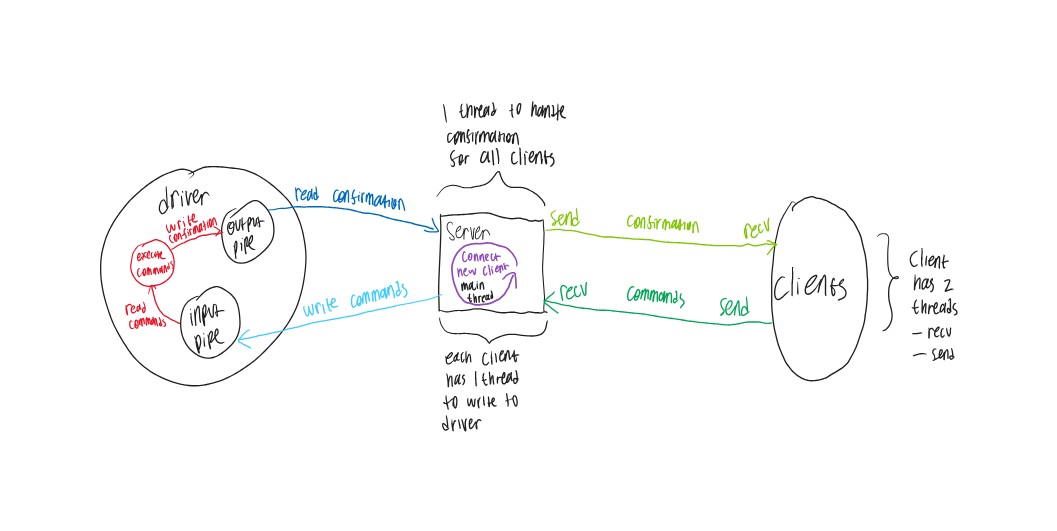 1 thread to handle
confirmation
for all clients
driver
write
confirmation
output
pipe
execute
commands
read
commands
input
pipe
read confirmation
write commands
server
connect
new client
main
thread
each client
has 1 thread
to write to
driver
send confirmation recv
recv commands send
clients
client
has 2
threads
- recv
- send